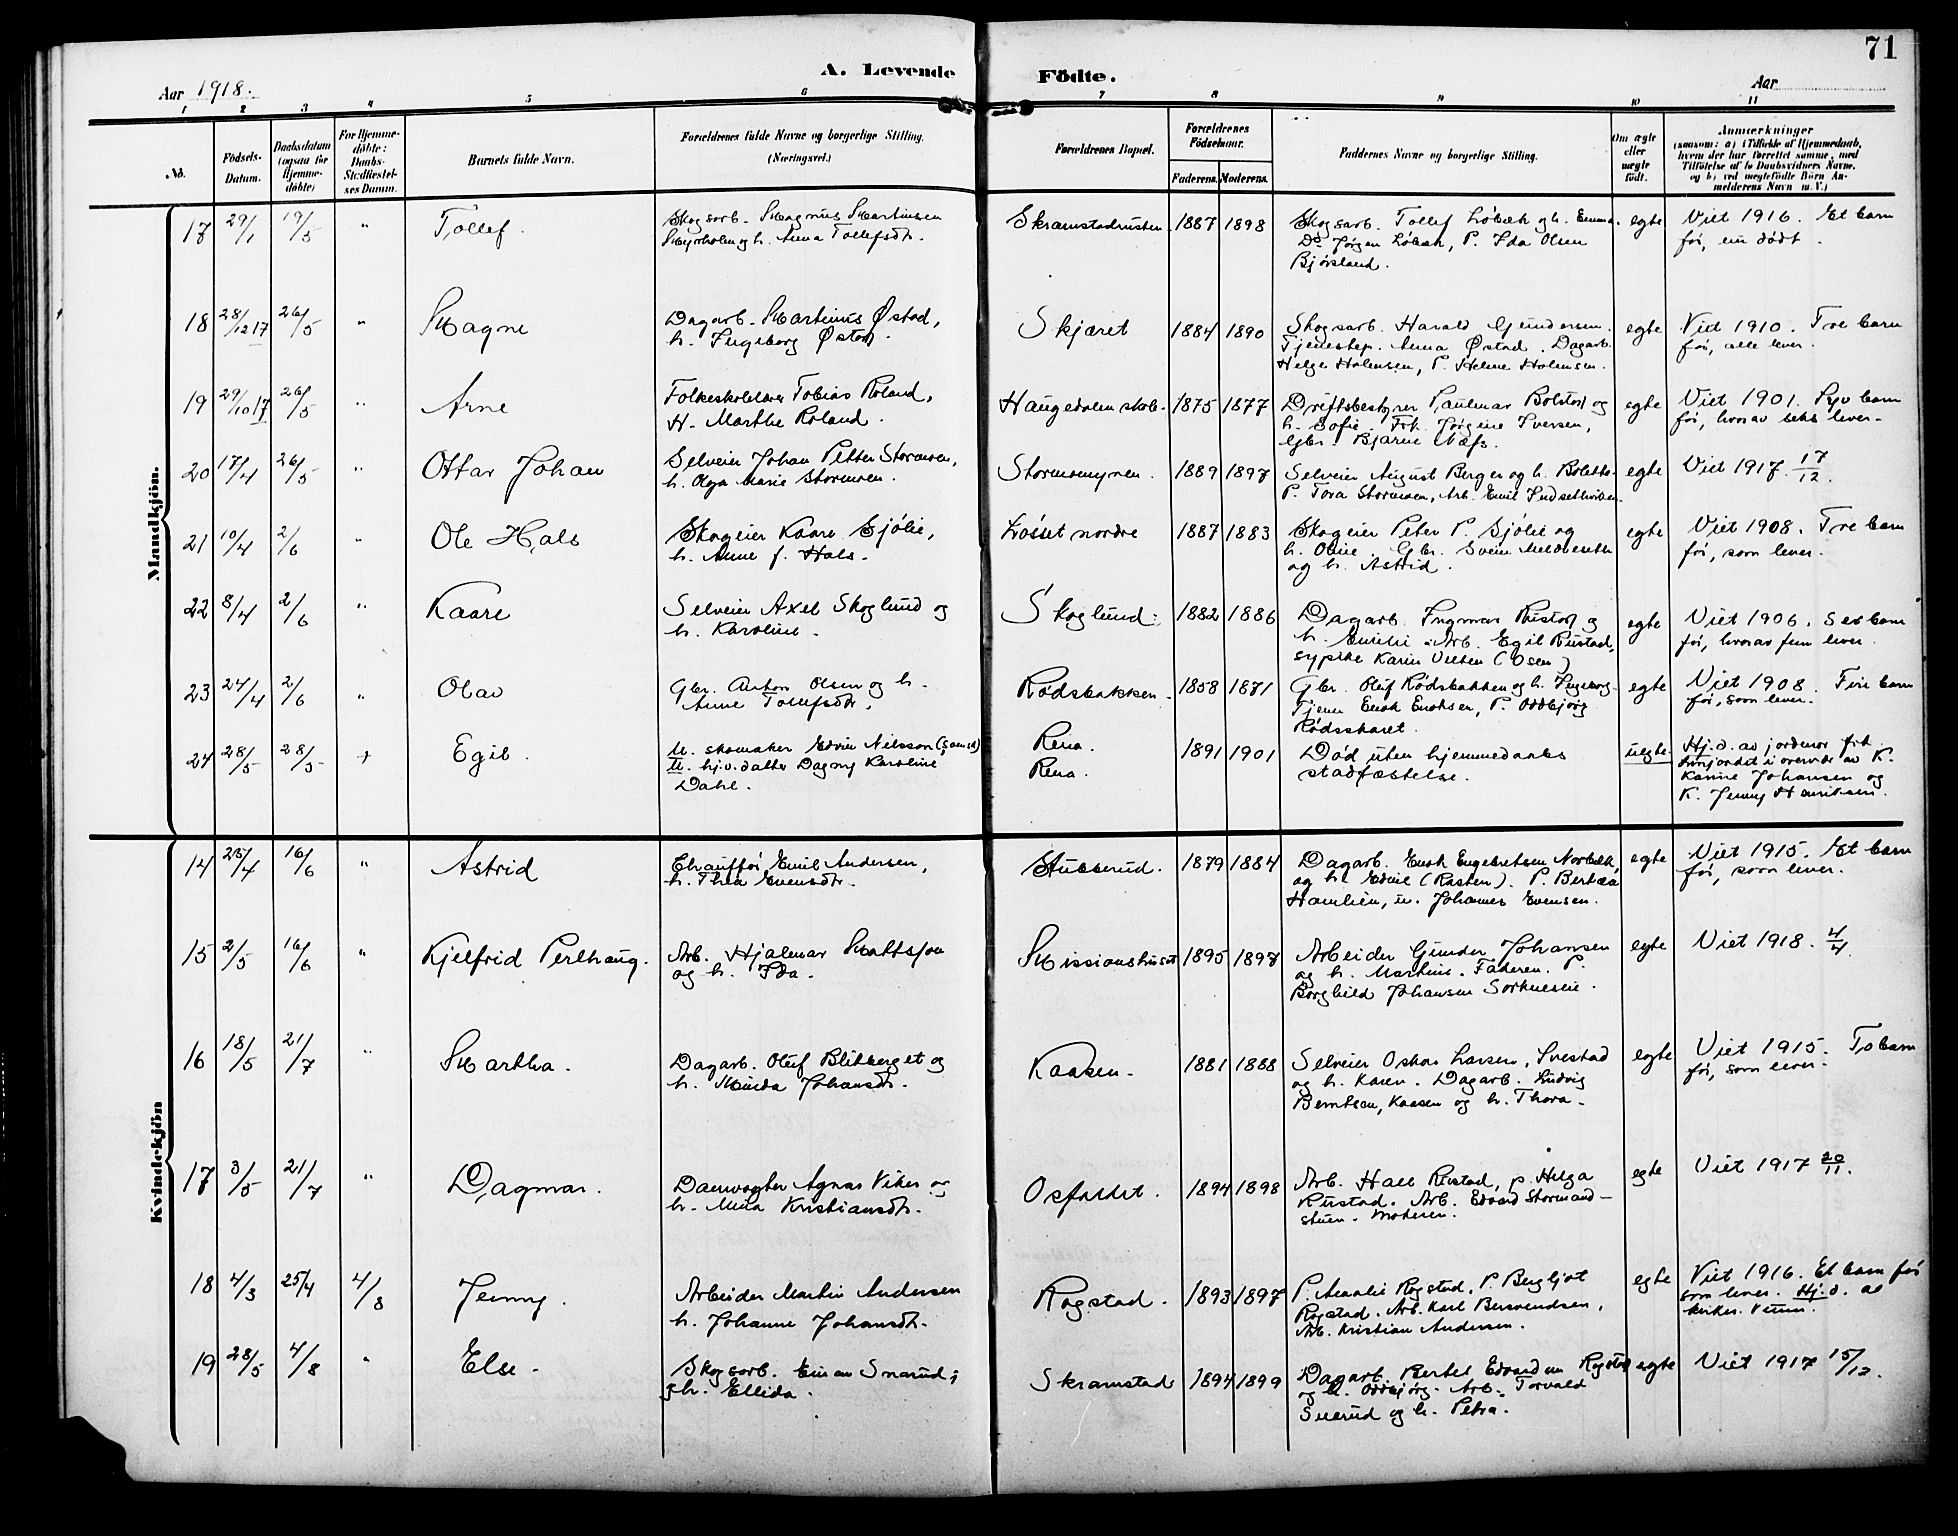 71
A. Levende Födte.
Aar 1918.
Aar
1 2 3 4 5 6 7 8 9 10 11
No.
Födsels-Datum.
Daabsdatum (ogsaa for Hjemme-döbte)
For Hjemme-döbte: Daabs-Stadfæstel-ses Datum.
Barnets fulde Navn.
Forældrenes fulde Navne og borgerlige Stilling.
(Næringsvei.)
Forældrenes Bopæl.
Forældrenes Födselsaar.
Faderens. Moderens.
Faddernes Navne og borgerlige Stilling.
Om ægte eller uægte födt.
Anmærkninger
(saasom: a) i Tilfælde af Hjemmedaab,
hvem der har forrettet samme, med
Tilföielse af to Daabsvidners Navne,
og b) ved uægtefödte Börn An-
melderens Navn m. V.)
Mandkjön.
17 29/1 19/5 " Tollef.
Skogsarb. Magnus Martinsen
Myrholen og h. Anna Tollefsdtr.
Skramstadrusten 1887 1898
Skogsarb. Tollef Löbak og h. Emma.
Do Jörgen Löbak, P. Ida Olsen
Bjørsland.
egte
Viet 1916. Et barn
før, nu dødt.
18 28/12 17 26/5 " Magne
Dagarb. Martinus Østad,
h. Ingeborg Østad.
Skjæret 1884 1890
Skogsarb. Harald Gundersen.
Tjenestep. Anna Østad. Dagarb.
Helge Holmsen, P. Helene Holmsen.
egte
Viet 1910. Tre barn
før, alle lever.
19 29/10 17 26/5 " Arne
Folkeskolelærer Tobias Roland,
H. Marthe Roland.
Haugedalen skole. 1875 1877
Driftsbestyrer Paulmar Bolstad og
h. Sofie. Frk. Jørgine Iversen,
Gbr. Bjarne Næss.
egte
Viet 1901. Syv barn
før, hvorav seks lever.
20 17/4 26/5 " Ottar Johan
Selveier Johan Petter Stormoen,
h. Olga Marie Stormoen.
Stormomyren. 1889 1897
Selveier August Berger og h. Bolette.
P. Tora Stormoen, Arb. Emil Indsetlviken.
egte
Viet 1917 17/12.
21 10/4 2/6 " Ole Hals
Skogeier Kaare Sjölie,
h. Anne f. Hals.
Løsset nordre 1887 1883
Skogeier Peter P. Sjölie og
h. Oline. Gbr. Svein Meldeseth
og h. Astrid.
egte
Viet 1908. Tre barn
før, som lever.
22 8/4 2/6 " Kaare
Selveier Axel Skoglund og
h. Karoline.
Skoglund. 1882 1886
Dagarb. Ingmar Rustad og
h. Emilie. Arb. Egil Rustad,
sypike Karin (Osen)
egte
Viet 1906. Seks barn
før, hvorav fem lever.
23 24/4 2/6 " Olav
Gbr. Anton Olsen og h.
Anne Tollefsdtr.
Rødsbakken. 1858 1871
Gbr. Oluf Rødsbakken og h. Ingeborg.
Tjener Enok Enoksen, P. Oddbjørg
Rødsskaret.
egte
Viet 1908. Fire barn
før, som lever.
24 28/5 28/5 + Egil.
U. skomaker Edvin Nilsson
U. hj.v. datter Dagny Karoline
Dahl.
Rena.
Rena. 1891 1901
Død uten hjemmedaabs
stadfæstelse.
uegte
Hj.d. av jordmor frk.
i overvær av K.
Karine Johansen og
K. Jenny Henriksen.
Kvindekjön
14 25/4 16/6 " Astrid
Chauffør Emil Andersen,
h. Thea Evensdtr.
Stubberud. 1879 1884
Dagarb. Enok Engebretsen Norbak
og h. Edvine (Rasten). P. Bertea
Hamlien, u. Johannes Evensen.
egte
Viet 1915. Et barn
før, som lever.
15 2/5 16/6 " Kjelfrid Perlhaug.
Arb. Hjalmar Mattsson
og h. Ida.
Missionshuset 1895 1897
Arbeider Gunder Johansen
og h. Martine. Faderen. P.
Borghild Johansen Sorknesseie.
egte
Viet 1918. 4/4.
16 18/5 21/7 " Martha.
Dagarb. Oluf Blikberget og
h. Minda Johansdtr.
Kaasen. 1881 1888
Selveier Oskar Larsen, Svestad
og h. Karen. Dagarb. Ludvig
Berntsen, Kaasen og h. Thora.
egte
Viet 1915. To barn
før, som lever.
17 3/5 21/7 " Dagmar.
Damvogter Agnar Viker og
h. Mina Kristiansdtr.
Osfallet. 1894 1898
Arb. Hall Rustad, p. Helga
Rustad. Arb. Edvard Stormand-
stuen. Moderen.
egte
Viet 1917 20/11.
18 4/3 25/4 4/8 Jenny.
Arbeider Martin Andersen
h. Johanne Johansdtr.
Rogstad. 1893 1897
P. Amalie Rogstad, P. Bergljot
Rogstad. Arb. Karl Bersvendsen,
Arb. Kristian Andersen.
egte
Viet 1916. Et barn før
som lever. Hj.d. av
kirkes. Veum.
19 28/5 4/8 " Else.
Skogsarb. Einar Snarud,
g.h. Ellida.
Skramstad 1894 1899
Dagarb. Bertel Edvardsen Rogstad
og h. Oddbjørg. Arb. Torvald
Snerud og h. Petra.
egte
Viet 1917 15/12.